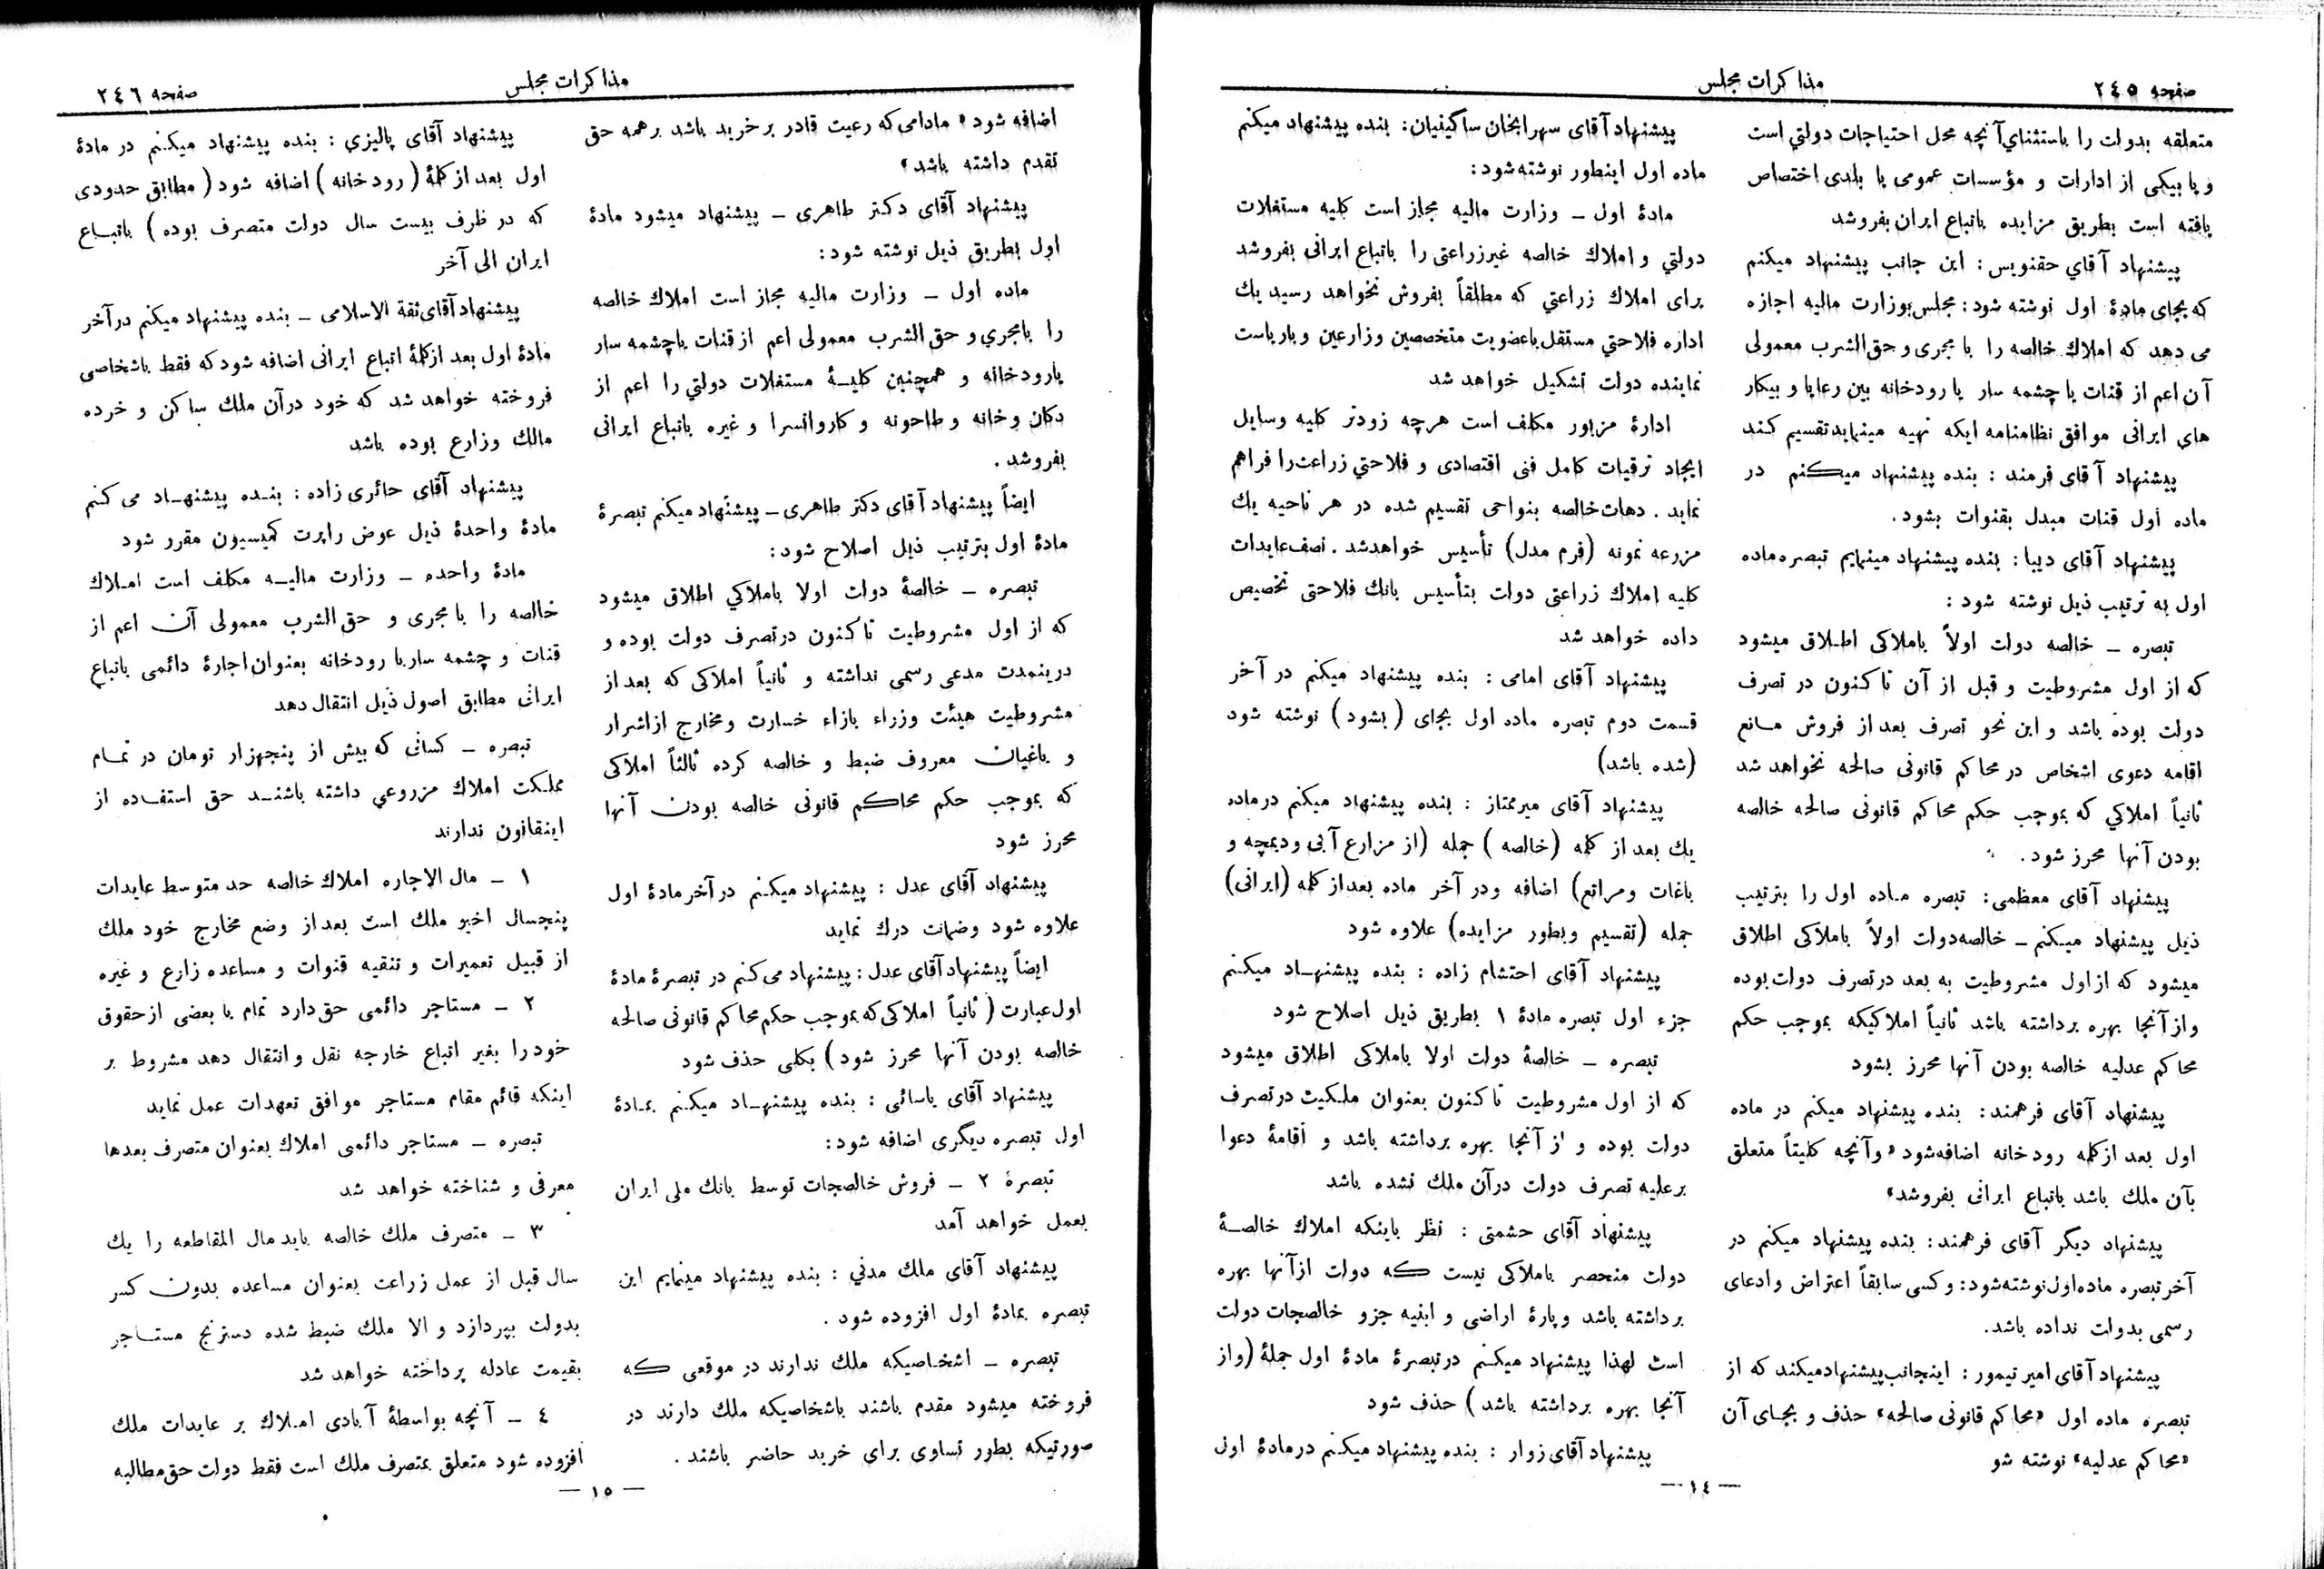 صفحه ۲٤٥
مذاکرات مجلس
متعلقه بدولت را باستثنای آنچه محل احتیاجات دولتي است
و یا بیکی از ادارات و مؤسسات عمومی یا بلدی اختصاص
یافته است بطریق مزایده باتباع ایران بفروشد
پیشنهاد آقاي حقنویس: این جانب پیشنهاد میکنم
که بجای مادهٔ اول نوشته شود: مجلس بوزارت مالیه اجازه
می دهد که املاك خالصه را با مجری و حق الشرب معمولی
آن اعم از قنات یا چشمه سار یا رودخانه بین رعایا و بیکار
هاي ایرانی موافق نظامنامه ایکه تهیه مینماید تقسیم کند
پیشنهاد آقای فرمند : بنده پیشنهاد میکنم در
ماده اول قنات مبدل بقنوات بشود.
پیشنهاد آقای دیبا: بنده پیشنهاد مینمایم تبصره ماده
اول به ترتیب ذیل نوشته شود :
تبصره ـ خالصه دولت اولاً باملاکی اطلاق میشود
که از اول مشروطیت و قبل از آن تا کنون در تصرف
دولت بوده باشد و این نحو تصرف بعد از فروش مانع
اقامه دعوی اشخاص در محاکم قانونی صالحه نخواهد شد
ثانیاً املاکي که بموجب حکم محاکم قانونی صالحه خالصه
بودن آنها محرز شود.
پیشنهاد آقای معظمی: تبصره ماده اول را بترتیب
ذیل پیشنهاد میکنم ـ خالصه دولت اولاً باملاکی اطلاق
میشود که از اول مشروطیت به بعد در تصرف دولت بوده
و از آنجا بهره برداشته باشد ثانیاً املاکیکه بموجب حکم
محاکم عدلیه خالصه بودن آنها محرز بشود
پیشنهاد آقای فرهمند: بنده پیشنهاد میکنم در ماده
اول بعد از کلمه رودخانه اضافه شود «و آنچه کلیتاً متعلق
بآن ملك باشد باتباع ایرانی بفروشد»
پیشنهاد دیگر آقای فرهمند: بنده پیشنهاد میکنم در
آخر تبصره ماده اول نوشته شود: و کسی سابقاً اعتراض و ادعای
رسمی بدولت نداده باشد.
پیشنهاد آقای امیر تیمور: اینجانب پیشنهاد میکند که از
تبصره ماده اول «محاکم قانونی صالحه» حذف و بجای آن
«محاکم عدلیه» نوشته شو
پیشنهاد آقای سهرابخان ساگینیان: بنده پیشنهاد میکنم
ماده اول اینطور نوشته شود:
مادهٔ اول ـ وزارت مالیه مجاز است کلیه مستغلات
دولتي و املاك خالصه غیرزراعتی را باتباع ایرانی بفروشد
برای املاك زراعتي که مطلقاً بفروش نخواهد رسید یك
اداره فلاحتي مستقل باعضویت متخصصین و زارعین و باریاست
نماینده دولت تشکیل خواهد شد
ادارهٔ مزبور مکلف است هرچه زودتر کلیه وسایل
ایجاد ترقیات کامل فنی اقتصادی و فلاحتي زراعت را فراهم
نماید. دهات خالصه بنواحی تقسیم شده در هر ناحیه یك
مزرعه نمونه (فرم مدل) تأسیس خواهد شد. نصف عایدات
کلیه املاك زراعتی دولت بتأسیس بانك فلاحتی تخصیص
داده خواهد شد
پیشنهاد آقای امامی: بنده پیشنهاد میکنم در آخر
قسمت دوم تبصره ماده اول بجای (بشود) نوشته شود
(شده باشد)
پیشنهاد آقای میرممتاز : بنده پیشنهاد میکنم در ماده
یك بعد از کلمه (خالصه) جمله (از مزارع آبی و دیمچه و
باغات و مراتع) اضافه و در آخر ماده بعد از کلمه (ایرانی)
جمله (تقسیم و بطور مزایده) علاوه شود
پیشنهاد آقای احتشام زاده : بنده پیشنهاد میکنم
جزء اول تبصره مادهٔ ۱ بطریق ذیل اصلاح شود
تبصره ـ خالصهٔ دولت اولا باملاکی اطلاق میشود
که از اول مشروطیت تا کنون بعنوان ملکیت در تصرف
دولت بوده و از آنجا بهره برداشته باشد و اقامهٔ دعوا
بر علیه تصرف دولت در آن ملك نشده باشد
پیشنهاد آقای حشمتی : نظر باینکه املاك خالصهٔ
دولت منحصر باملاکی نیست که دولت از آنها بهره
برداشته باشد و پارهٔ اراضی و ابنیه جزو خالصجات دولت
است لهذا پیشنهاد میکنم در تبصرهٔ مادهٔ اول جملهٔ (و از
آنجا بهره برداشته باشد) حذف شود
پیشنهاد آقای زوار : بنده پیشنهاد میکنم در مادهٔ اول
— ۱٤ —
مذاکرات مجلس
صفحه ۲٤٦
اضافه شود « مادامی که رعیت قادر بر خرید باشد بر همه حق
تقدم داشته باشد»
پیشنهاد آقای دکتر طاهری ـ پیشنهاد میشود مادهٔ
اول بطریق ذیل نوشته شود:
ماده اول ـ وزارت مالیه مجاز است املاك خالصه
را بامجري و حق الشرب معمولی اعم از قنات یاچشمه سار
یارودخانه و همچنین کلیهٔ مستغلات دولتي را اعم از
دکان و خانه و طاحونه و کاروانسرا و غیره باتباع ایرانی
بفروشد.
ایضاً پیشنهاد آقای دکتر طاهری ـ پیشنهاد میکنم تبصرهٔ
مادهٔ اول بترتیب ذیل اصلاح شود:
تبصره ـ خالصهٔ دولت اولا باملاکي اطلاق میشود
که از اول مشروطیت تا کنون در تصرف دولت بوده و
در ینمدت مدعی رسمی نداشته و ثانیاً املاکی که بعد از
مشروطیت هیئت وزراء بازاء خسارت و مخارج از اشرار
و یاغیان معروف ضبط و خالصه کرده ثالثاً املاکی
که بموجب حکم محاکم قانونی خالصه بودن آنها
محرز شود
پیشنهاد آقای عدل : پیشنهاد میکنم در آخر مادهٔ اول
علاوه شود و ضمانت درك نماید
ایضاً پیشنهاد آقای عدل: پیشنهاد می کنم در تبصرهٔ مادهٔ
اول عبارت (ثانیاً املاکی که بموجب حکم محاکم قانونی صالحه
خالصه بودن آنها محرز شود) بکلی حذف شود
پیشنهاد آقای یاسائی : بنده پیشنهاد میکنم بمادهٔ
اول تبصره دیگری اضافه شود:
تبصرهٔ ۲ ـ فروش خالصجات توسط بانك ملی ایران
بعمل خواهد آمد
پیشنهاد آقای ملك مدني : بنده پیشنهاد مینمایم این
تبصره بمادهٔ اول افزوده شود.
تبصره ـ اشخاصیکه ملك ندارند در موقعی که
فروخته میشود مقدم باشند باشخاصیکه ملك دارند در
صورتیکه بطور تساوی برای خرید حاضر باشند.
پیشنهاد آقای پالیزي : بنده پیشنهاد میکنم در مادهٔ
اول بعد از کلمهٔ (رودخانه) اضافه شود (مطابق حدودی
که در ظرف بیست سال دولت متصرف بوده) باتباع
ایران الی آخر
پیشنهاد آقای ثقة الاسلامی ـ بنده پیشنهاد میکنم در آخر
مادهٔ اول بعد از کلمهٔ اتباع ایرانی اضافه شود که فقط باشخاصی
فروخته خواهد شد که خود در آن ملك ساکن و خرده
مالك و زارع بوده باشد
پیشنهاد آقای حائری زاده : بنده پیشنهاد می کنم
مادهٔ واحدهٔ ذیل عوض راپرت کمیسیون مقرر شود
مادهٔ واحده ـ وزارت مالیه مکلف است املاك
خالصه را با مجری و حق الشرب معمولی آن اعم از
قنات و چشمه سار یا رودخانه بعنوان اجارهٔ دائمی باتباع
ایرانی مطابق اصول ذیل انتقال دهد
تبصره ـ کسانی که بیش از پنجهزار تومان در تمام
مملکت املاك مزروعي داشته باشند حق استفاده از
اینقانون ندارند
۱ ـ مال الاجاره املاك خالصه حد متوسط عایدات
پنجسال اخیو ملك است بعد از وضع مخارج خود ملك
از قبیل تعمیرات و تنقیه قنوات و مساعده زارع و غیره
۲ ـ مستاجر دائمی حق دارد تمام یا بعضی از حقوق
خود را بغیر اتباع خارجه نقل و انتقال دهد مشروط بر
اینکه قائم مقام مستاجر موافق تعهدات عمل نماید
تبصره ـ مستاجر دائمی املاك بعنوان متصرف بعدها
معرفی و شناخته خواهد شد
۳ ـ متصرف ملك خالصه باید مال المقاطعه را یك
سال قبل از عمل زراعت بعنوان مساعده بدون کسر
بدولت بپردازد و الا ملك ضبط شده دسترنج مستاجر
بقیمت عادله پرداخته خواهد شد
٤ ـ آنچه بواسطهٔ آبادی املاك بر عایدات ملك
افزوده شود متعلق بمتصرف ملك است فقط دولت حق مطالبه
— ۱٥ —